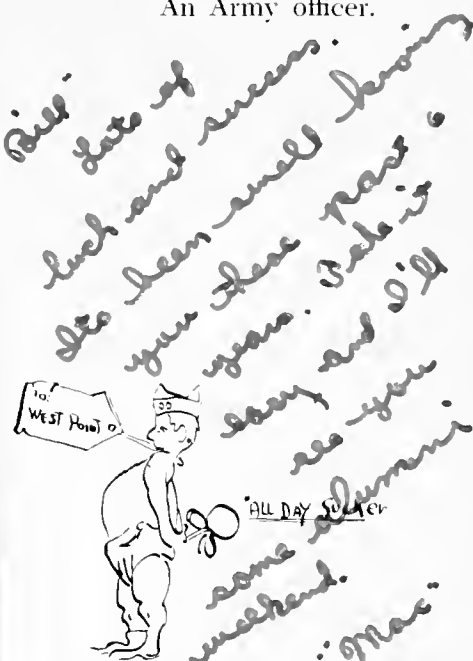 An Army officer.
"Bill"
Lots of
luck and success.
Its been swell knowing
you these past
years. Take it
easy and I'll
see you
some alumni
weekend.
"Mac"
TO:
WEST POINT
"ALL DAY SUCKER